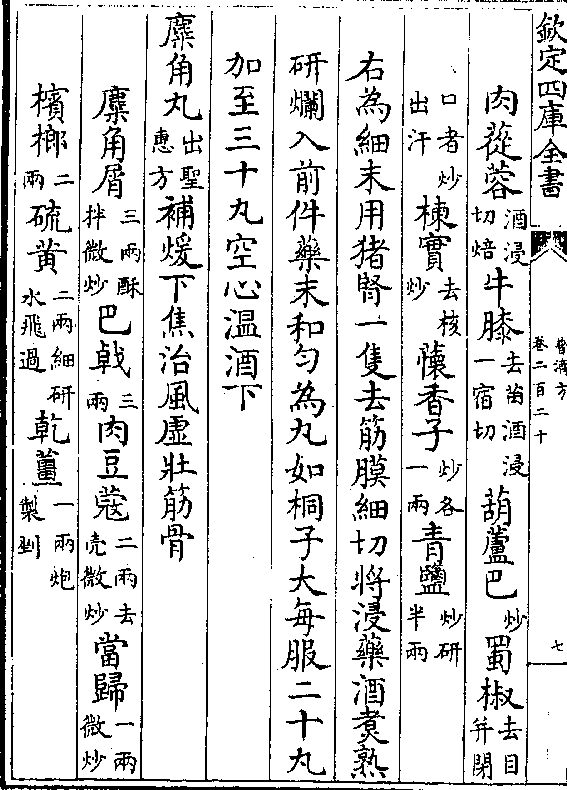 欽定四庫全書
普濟方
卷二百二十
七
肉蓯蓉酒浸切焙牛膝去苗酒浸一宿切葫蘆巴炒蜀椒去目并閉
口者炒出汗楝實去核炒懐香子炒各一兩青鹽炒研半兩
右為細末用猪腎一隻去筋膜細切將浸藥酒煑熟
研爛入前件藥末和勻為丸如桐子大每服二十丸
加至三十丸空心温酒下
麋角丸出聖惠方補煖下焦治風虚壯筋骨
麋角屑三兩酥拌微炒巴㦸三兩肉豆蔻二兩去壳微炒當歸一兩微炒
檳榔二兩硫黄二兩細研水飛過乾薑一兩炮製剉